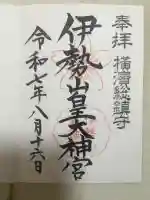 奉拝 横濱総鎮守
伊勢山皇大神宮
令和七年八月十六日